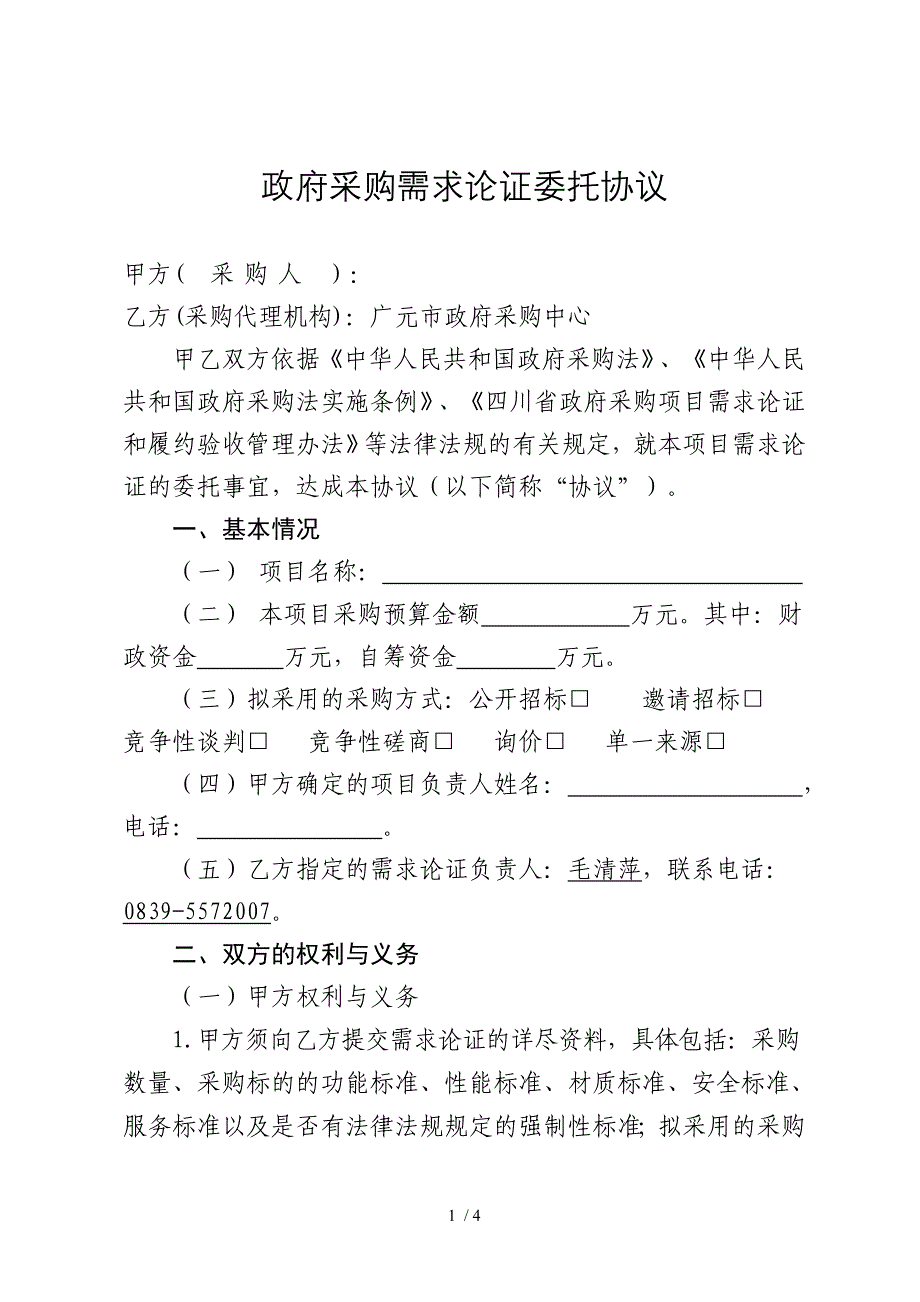 政府采购需求论证委托协议
甲方(　采 购 人　)：
乙方(采购代理机构)：广元市政府采购中心
甲乙双方依据《中华人民共和国政府采购法》、《中华人民
共和国政府采购法实施条例》、《四川省政府采购项目需求论证
和履约验收管理办法》等法律法规的有关规定，就本项目需求论
证的委托事宜，达成本协议（以下简称“协议”）。
一、基本情况
（一） 项目名称：____________________
（二） 本项目采购预算金额____________万元。其中：财
政资金_______万元，自筹资金________万元。
（三）拟采用的采购方式：公开招标□　　邀请招标□
竞争性谈判□　竞争性磋商□　询价□　单一来源□
（四）甲方确定的项目负责人姓名：___________________，
电话：_______________。
（五）乙方指定的需求论证负责人：毛清萍，联系电话：
0839-5572007。
二、双方的权利与义务
（一）甲方权利与义务
1.甲方须向乙方提交需求论证的详尽资料，具体包括：采购
数量、采购标的的功能标准、性能标准、材质标准、安全标准、
服务标准以及是否有法律法规规定的强制性标准；拟采用的采购
1 / 4